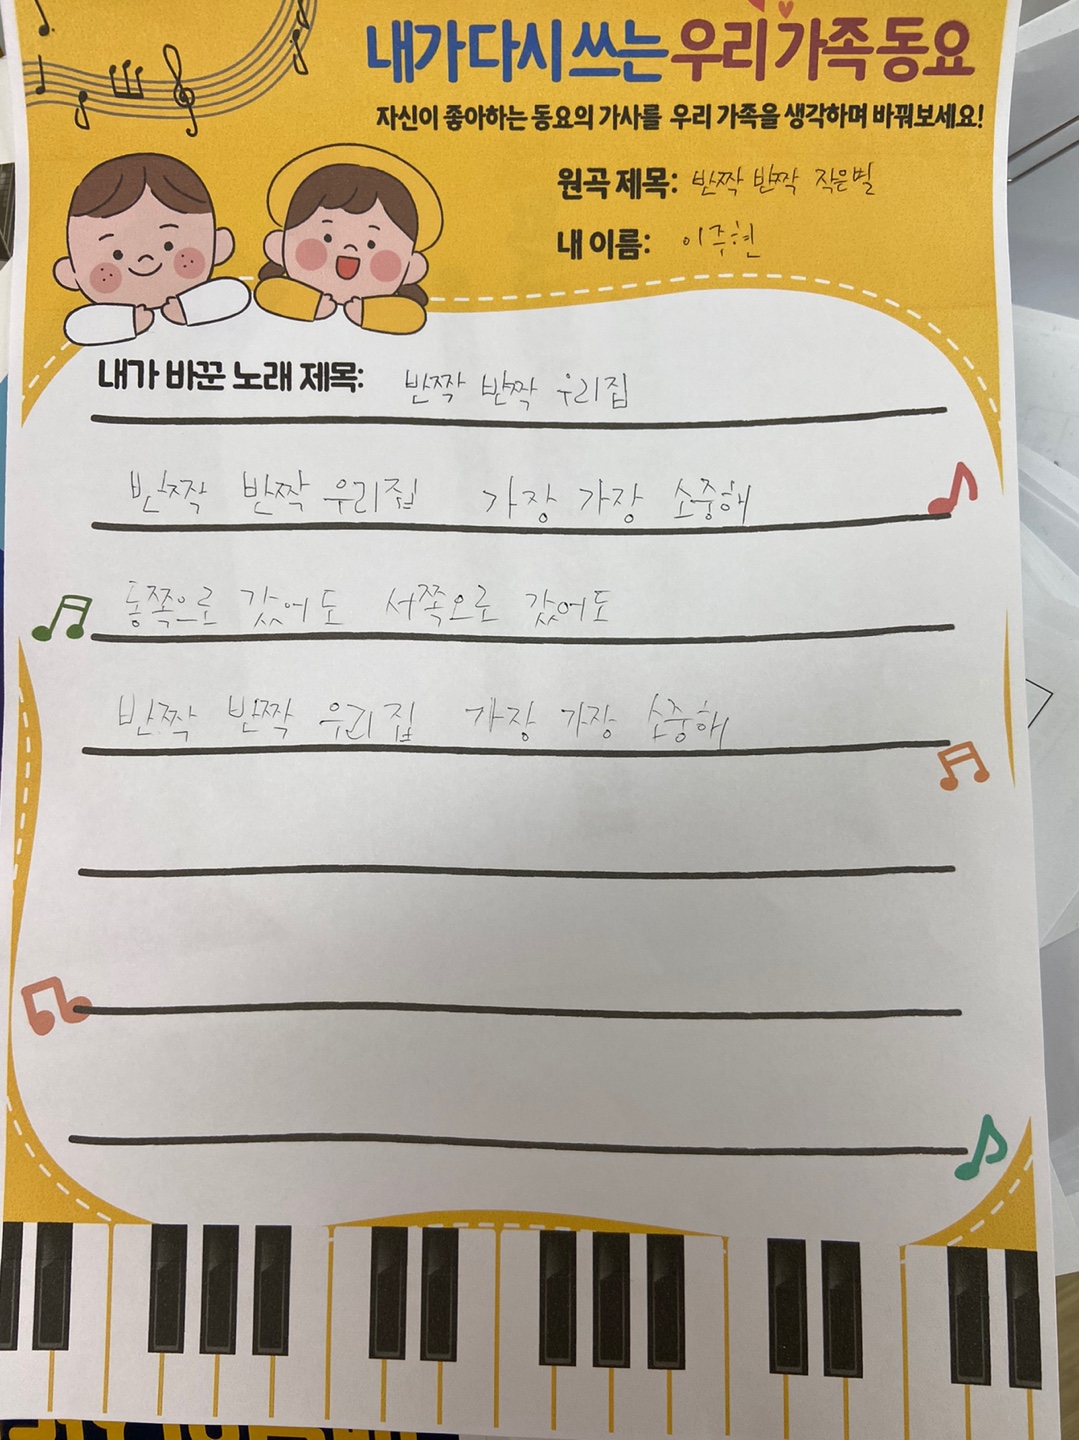 내가 다시 쓰는 우리 가족 동요
자신이 좋아하는 동요의 가사를 우리 가족을 생각하며 바꿔보세요!
원곡 제목: 반짝 반짝 작은별
내 이름: 이주현
내가 바꾼 노래 제목: 반짝 반짝 우리집
반짝 반짝 우리집 가장 가장 소중해
동쪽으로 갔어도 서쪽으로 갔어도
반짝 반짝 우리집 가장 가장 소중해